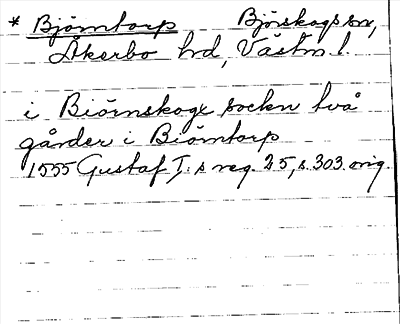 * Björntorp Björskogs sn,
Åkerbo hd, Västm l.
i Biörnskoge sockn två
gårder i Biörntorp
1555 Gustaf I:s reg. 25, s. 303. orig.